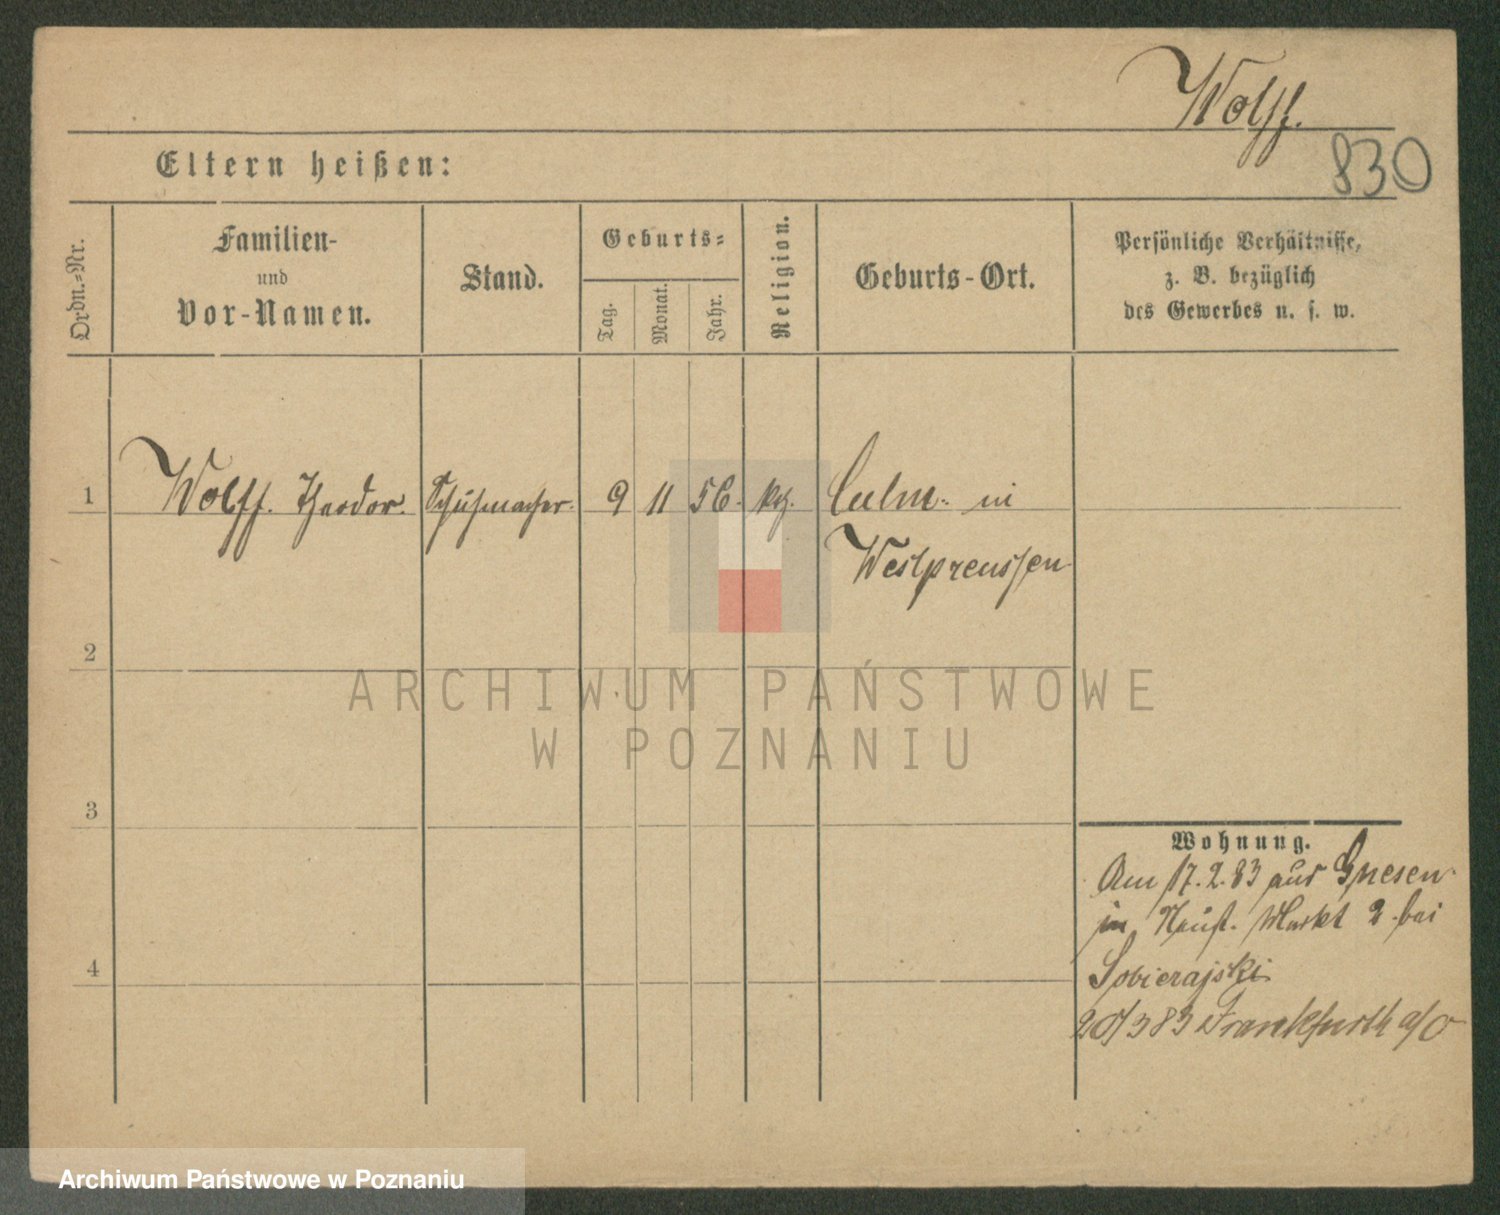 Wolff.
830
Eltern heißen:
Ordn.=Nr.
Familien-
und
Vor-Namen.
Stand.
Geburts=
Tag.
Monat.
Jahr.
Religion.
Geburts-Ort.
Persönliche Verhältnisse,
z. B. bezüglich
des Gewerbes u. s. w.
1 Wolff. Theodor. Schuhmacher. 9 11 56. Culm in
Westpreussen
2
ARCHIWUM PAŃSTWOWE
W POZNANIU
3
Wohnung.
Am 17.2.83 aus Gnesen
in Neust. Markt 2 bei
4
Sobierajski
20/3 83 Frankfurth a/O
Archiwum Państwowe w Poznaniu